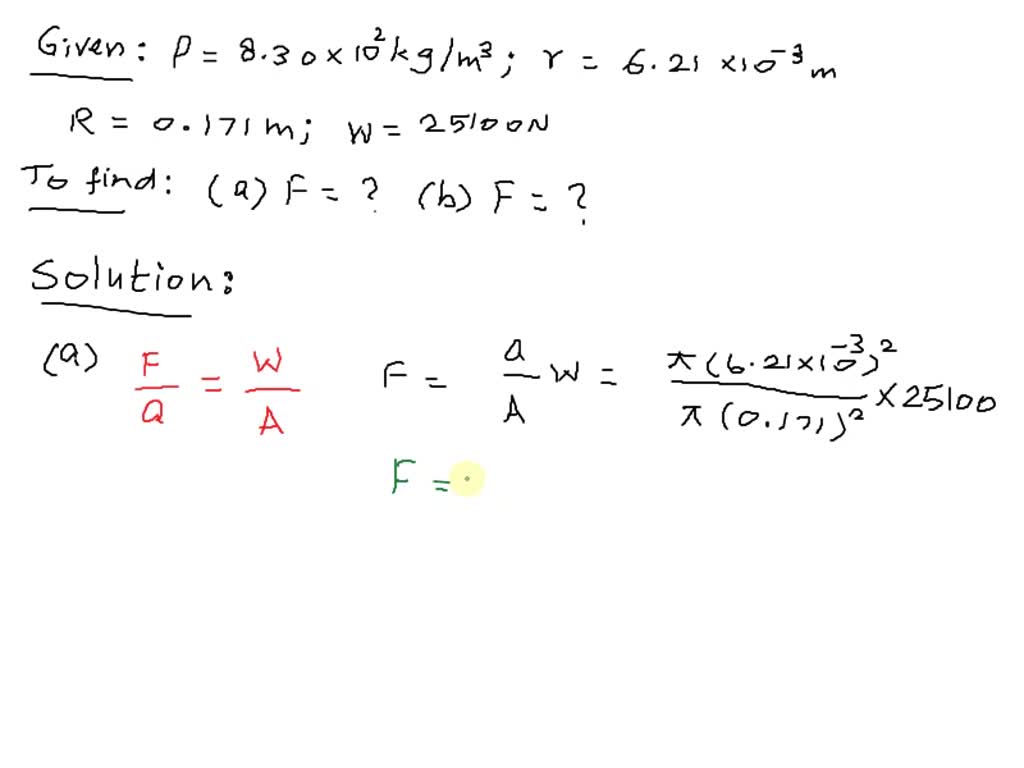 Given: ρ = 8.30 × 10² kg/m³; r = 6.21 × 10⁻³ m
R = 0.171 m; W = 25100 N
To find: (a) F = ? (b) F = ?
Solution:
(a) F/a = W/A F = a/A W = π(6.21×10⁻³)²/π(0.171)² × 25100
F =